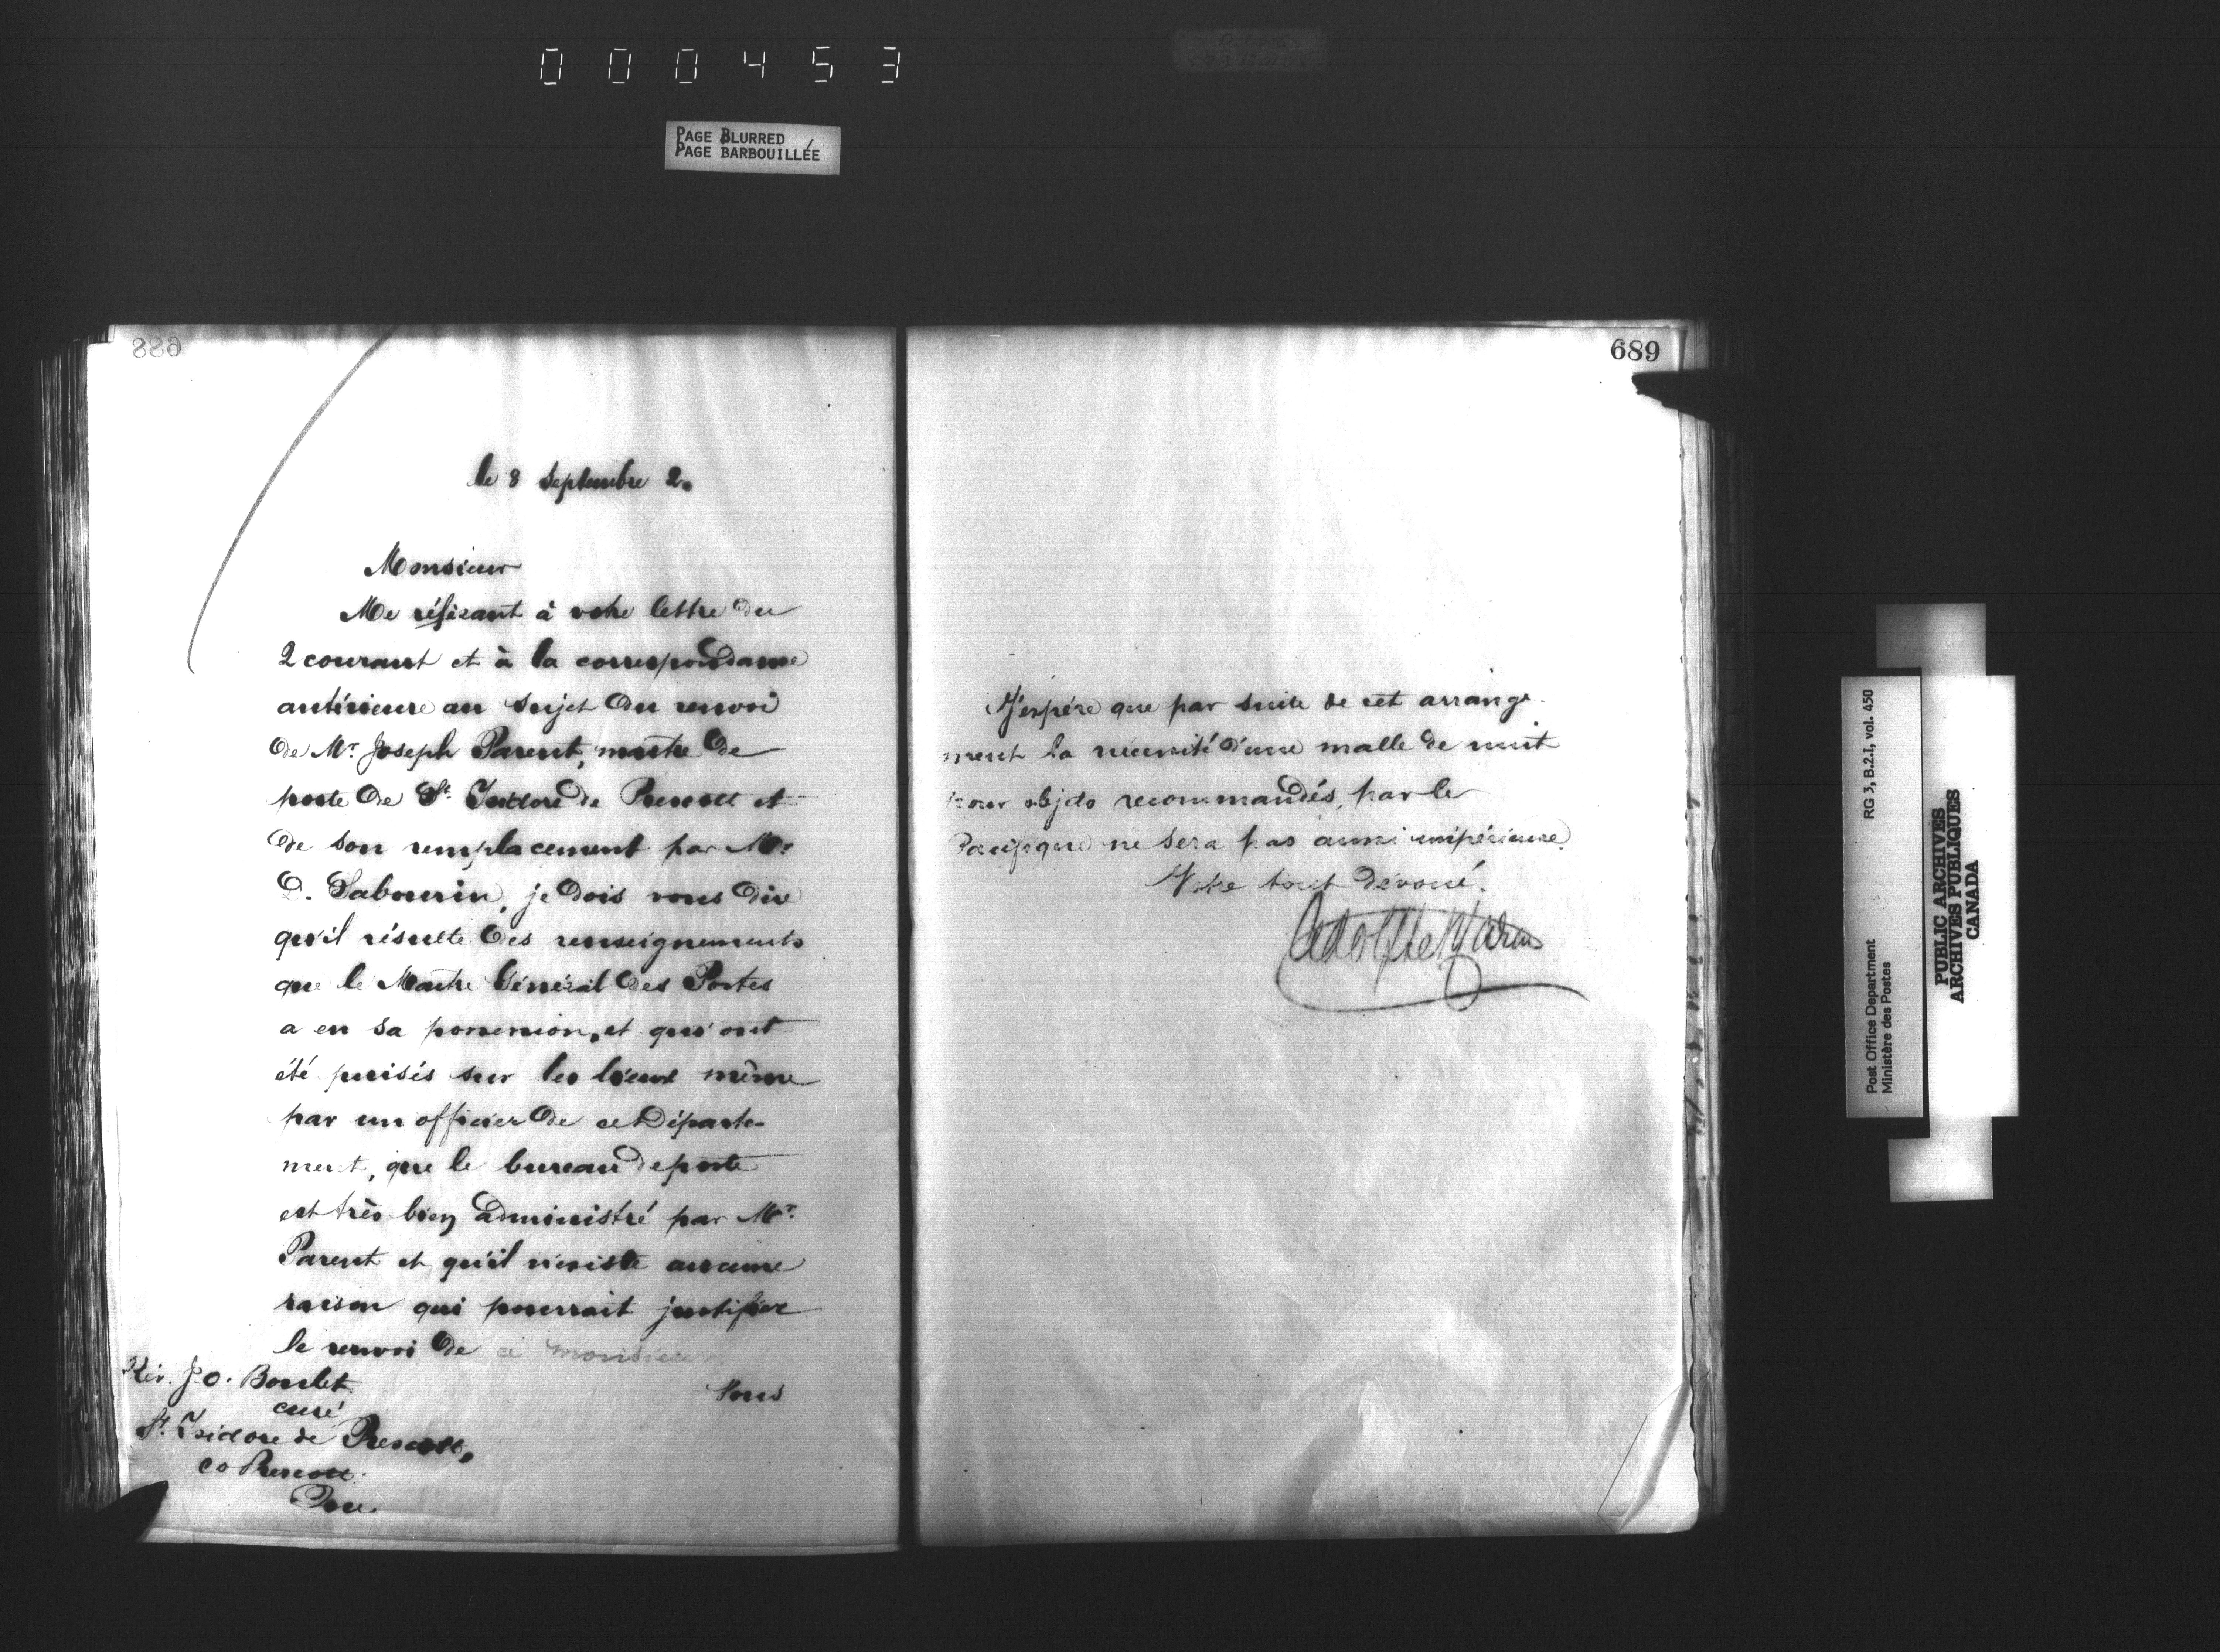 000453
PAGE BLURRED
PAGE BARBOUILLÉE
688
le 8 Septembre 2.
Monsieur
Me référant à votre lettre du
2 courant et à la correspondance
antérieure au sujet du renvoi
de Mr. Joseph Parent, maître de
poste de St. Isidore de Prescott et
de son remplacement par Mr.
D. Sabourin, je dois vous dire
qu'il résulte des renseignements
que le Maître Général des Postes
a en sa possession, et qui ont
été puisés sur les lieux même
par un officier de ce Départe-
ment, que le bureau de poste
est très bien administré par Mr.
Parent et qu'il n'existe aucune
raison qui pourrait justifier
le renvoi de ce monsieur
Vous
Rév. J. O. Boulet
curé
St. Isidore de Prescott,
co Prescott.
689
J'espére que par suite de cet arrange-
ment la nécessité d'une malle de nuit
pour objets recommandés, par le
Pacifique ne sera pas aussi impérieuse.
Votre tout dévoué.
Post Office Department
Ministère des Postes
RG 3, B.2.I, vol. 450
PUBLIC ARCHIVES
ARCHIVES PUBLIQUES
CANADA